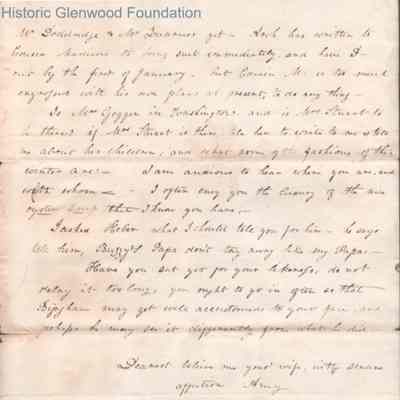 Historic Glenwood Foundation
Mr Doddridge & Mr yet - has written to
Cousin Madison to bring suit immediately, and have it
out by the first of January. But Cousin M. is too much
engrossed with his own plans at present, to do any thing -
Is Mrs in Washington, and is Mrs Stuart to
be there? if Mrs Stuart is there, her to write to me & tell
me about her children, and what some of the fashions of this
winter are - I am anxious to hear where you are, and
with whom - I often envy you the luxury of the nice
oyster soup that I know you have -
I asked what I should tell you for him - he says
tell him, Papa don't stay away like my Papa -
Have you sat yet for your likeness, do not
delay it too long, you ought to go in often so that
Bingham may get well accustomed to your face, and
perhaps he may see it differently from what he did
Dearest believe me your wife, with sincere
affection Amy